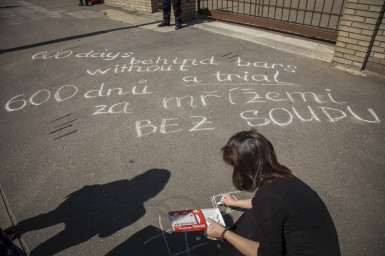 600 days behind bars
without a trial
600 dnů za mřížemi
BEZ SOUDU